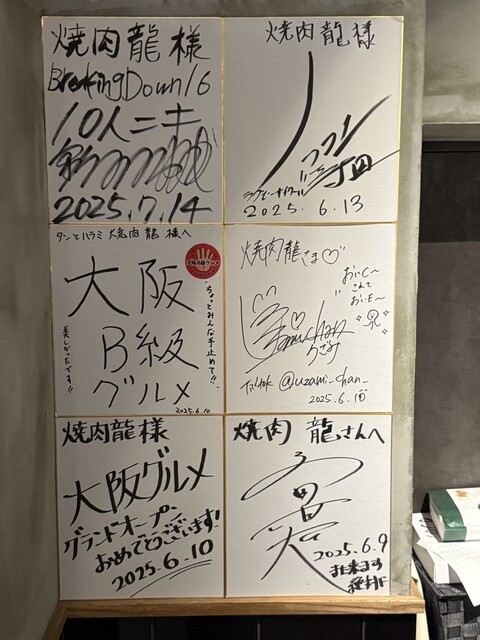 焼肉龍様
BreakingDown16
10人ニキ
2025.7.14
焼肉龍様
2025.6.13
タンとハラミ 焼肉龍 様へ
大阪
B級
グルメ
"ちょっとみんな手止めて!!"
美しかったです!!
2025.6.10
焼肉龍さま♡
おいC〜
こんて
おいE〜
うざみ
TikTok @uzami_chan_
2025.6.10
焼肉龍様
大阪グルメ
グランドオープン
おめでとうございます!
2025.6.10
焼肉 龍さんへ
2025.6.9
また来ます